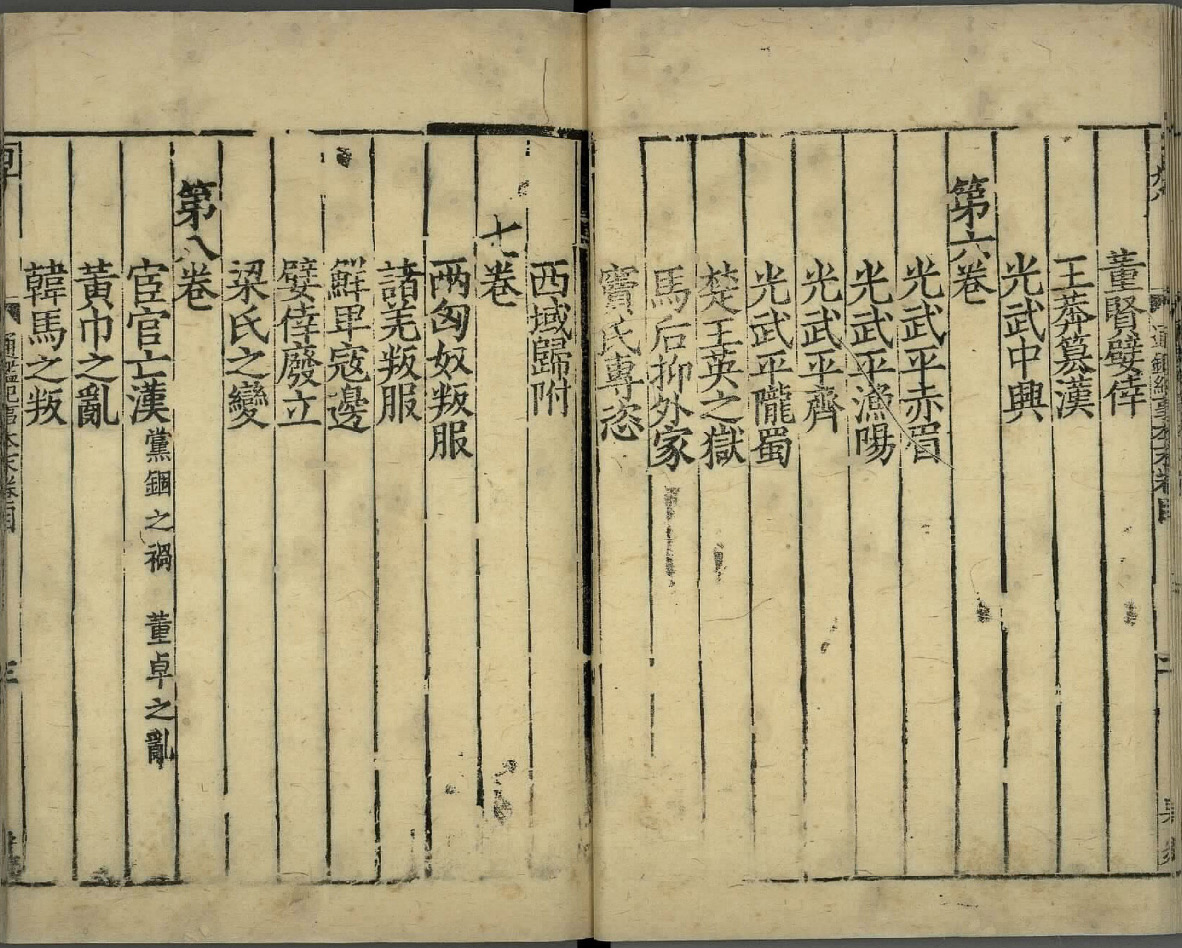 董賢嬖倖
王莽簒漢
光武中興
第六卷
光武平赤眉
光武平漁陽
光武平齊
光武平隴蜀
楚王英之獄
馬后抑外家
竇氏專恣
西域歸附
七卷
兩匈奴叛服
諸羌叛服
鮮卑寇邊
嬖倖廢立
梁氏之變
第八卷
宦官亡漢 黨錮之禍 董卓之亂
黃巾之亂
韓馬之叛
通鑑紀事本末卷目
三